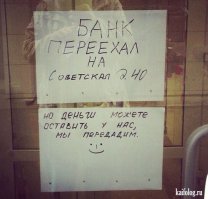 БАНК
ПЕРЕЕХАЛ
НА
Советская д.40
НО ДЕНЬГИ МОЖЕТЕ
ОСТАВИТЬ У НАС,
МЫ ПЕРЕДАДИМ.
kaifolog.ru